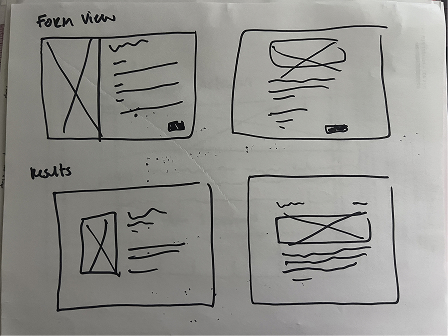 Form View
Results